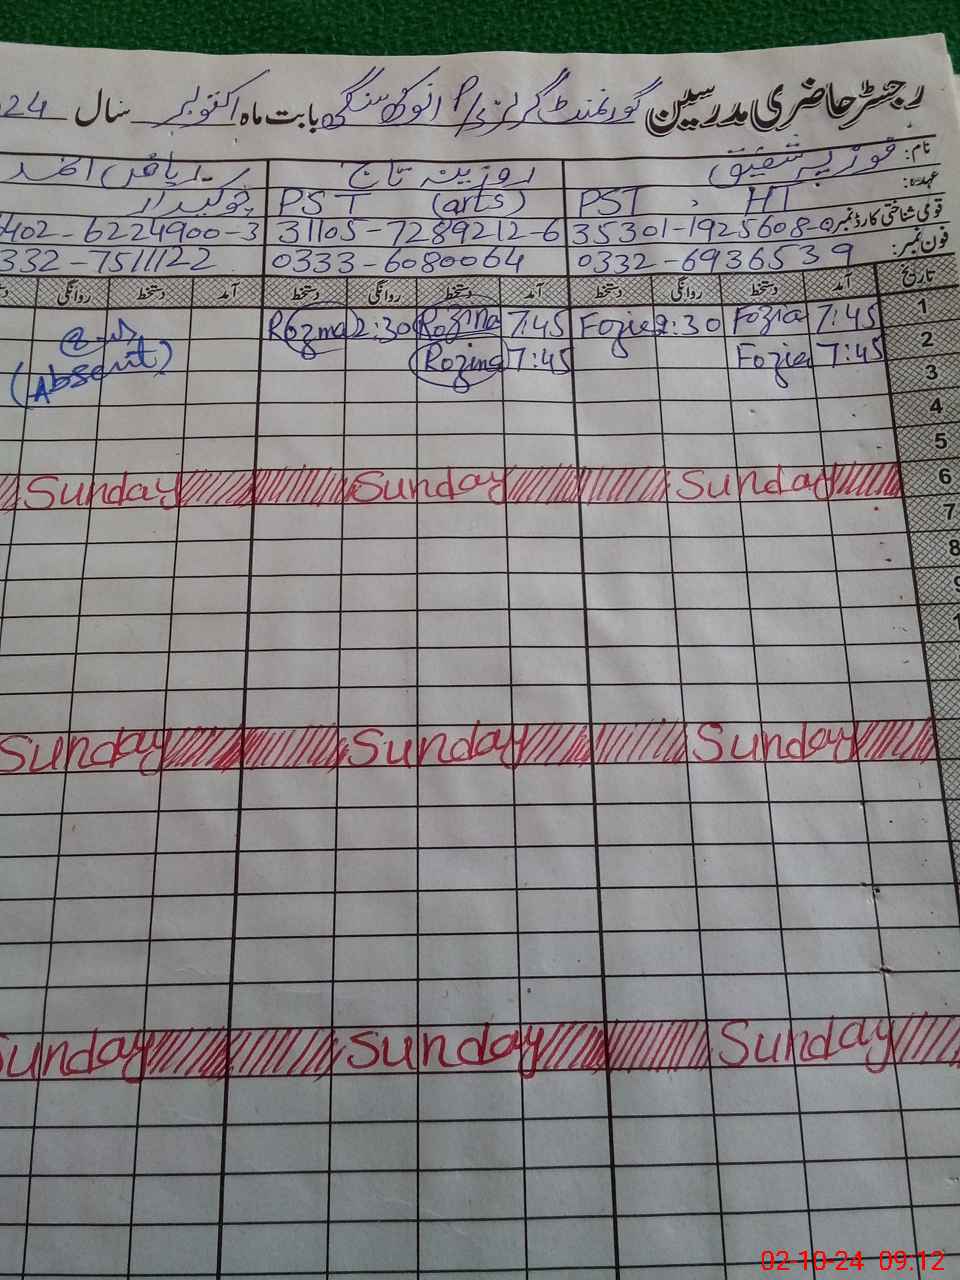 رجسٹر حاضری مدرسین گورنمنٹ گرلز P/S انوکھ سنگھ بابت ماہ اکتوبر سال 24
نام: فوزیہ شفیق روزینہ تاج ریاض احمد
عہدہ: PST , HT PST (arts) چوکیدار
قومی شناختی کارڈ نمبر 35301-1925608-0 31105-7289212-6 402-6224900-3
فون نمبر: 0332-6936539 0333-6080064 332-7511122
تاریخ آمد دستخط روانگی دستخط آمد دستخط روانگی دستخط آمد دستخط روانگی
1 7:45 Fozia 2:30 Fozia 7:45 Rozina 2:30 Rozina
2 7:45 Fozia 7:45 Rozina (Absent)
3
4
5
6 Sunday Sunday Sunday
7
8
Sunday Sunday Sunday
Sunday Sunday Sunday
02-10-24 09:12